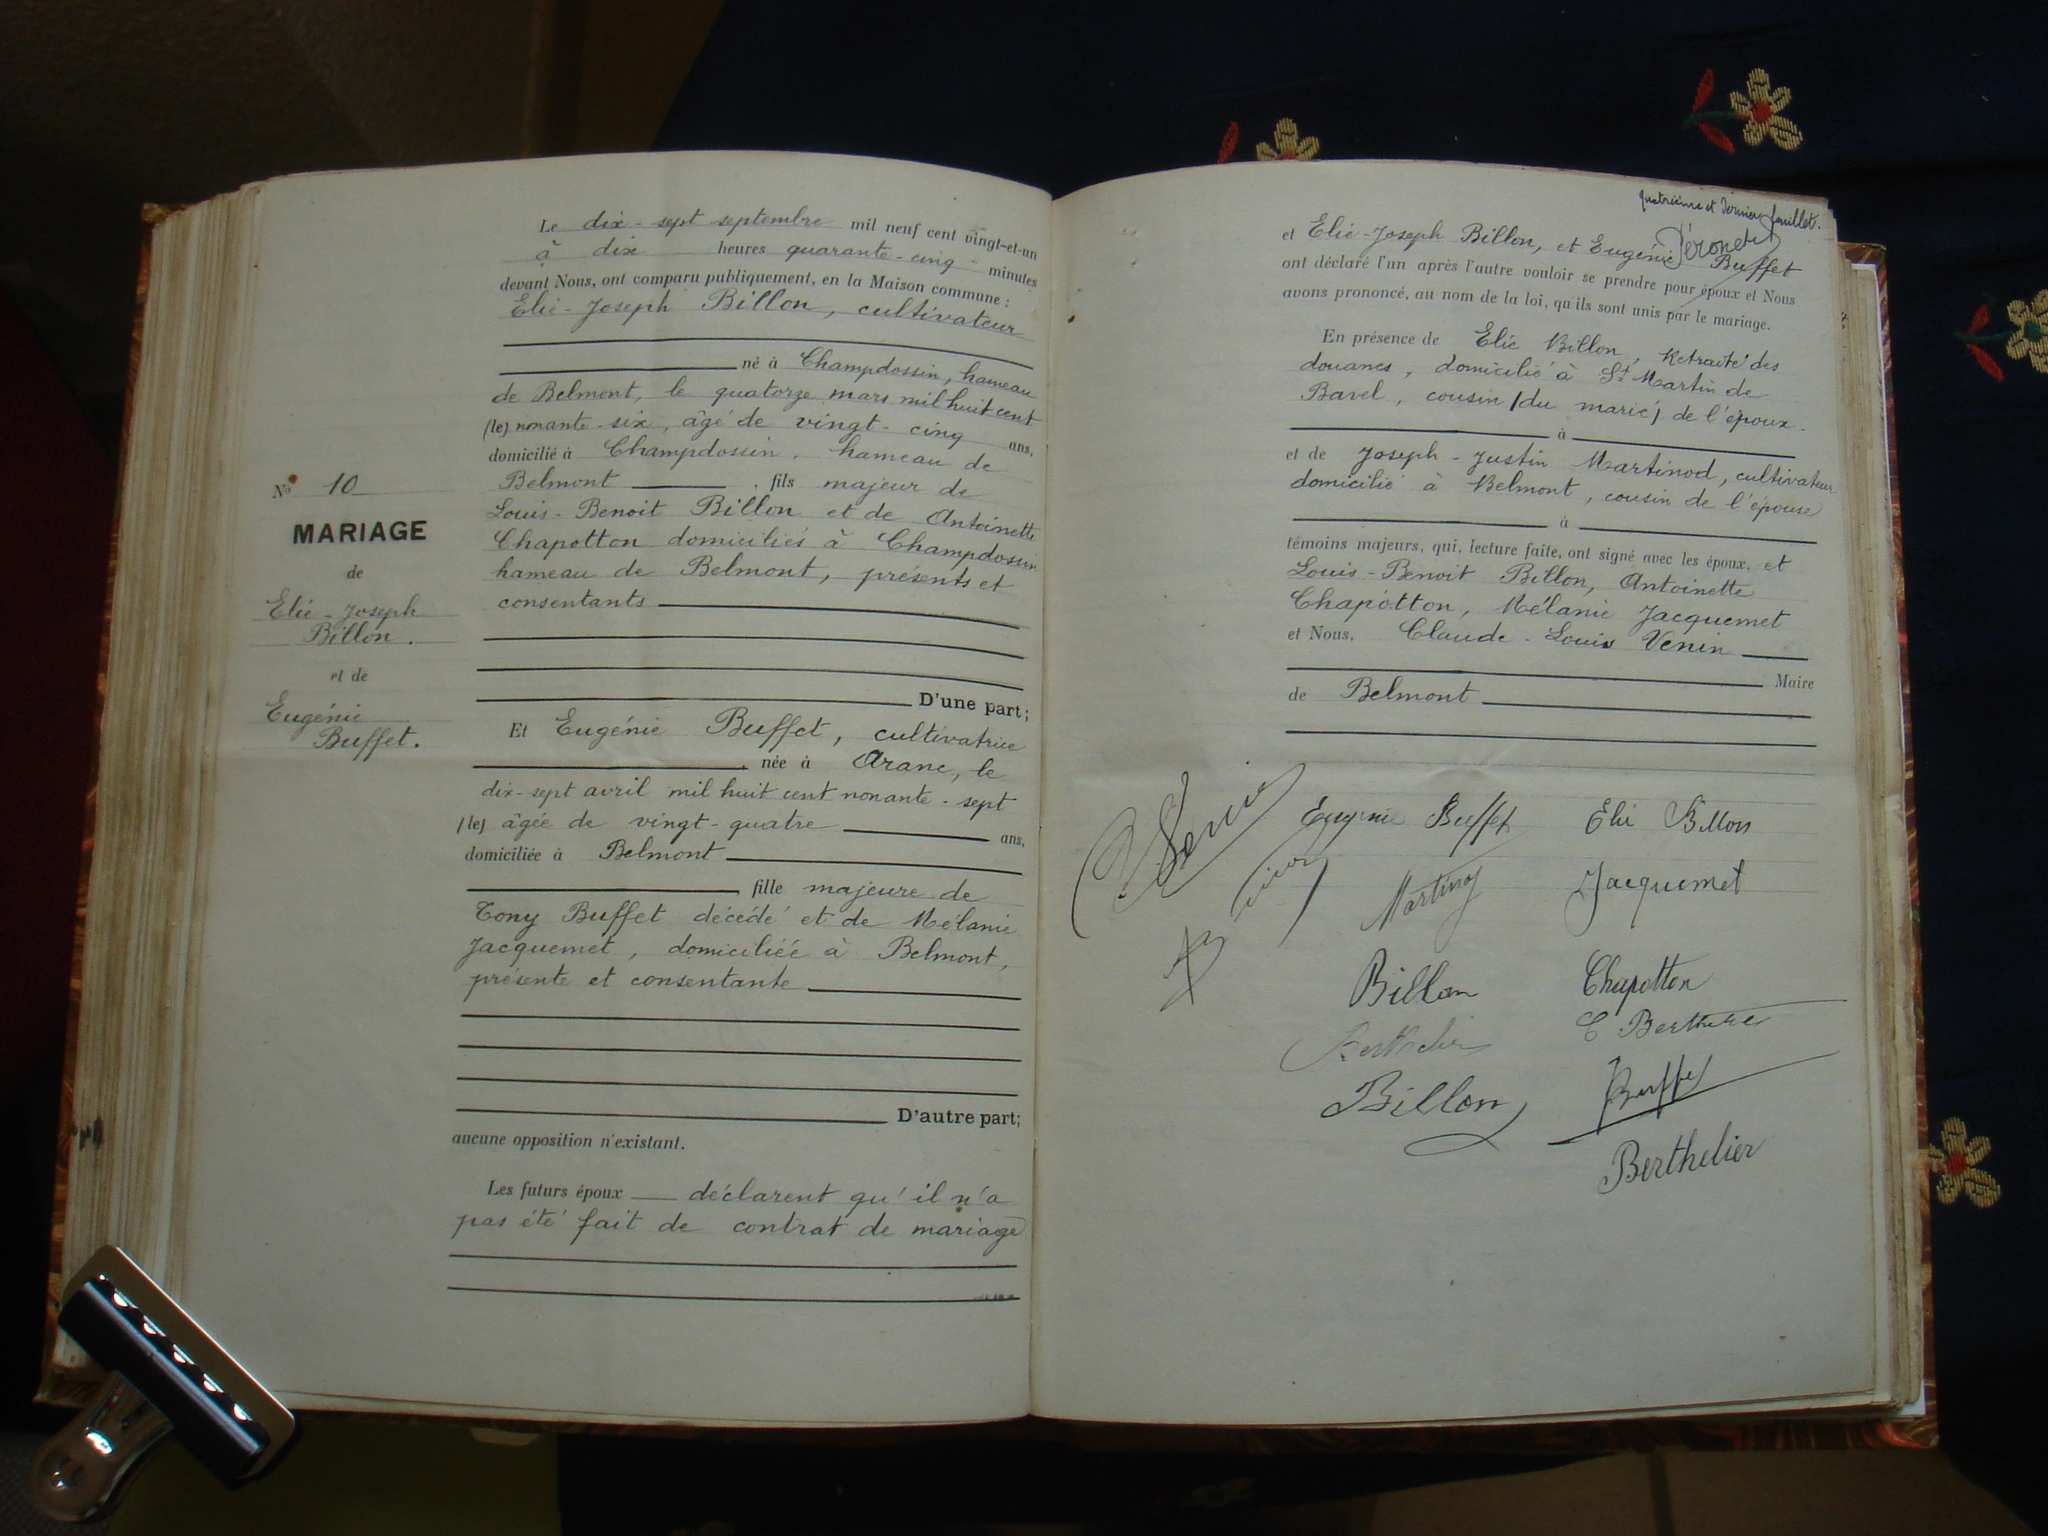 Le dix-sept septembre mil neuf cent vingt-et-un
à dix heures quarante-cinq minutes
devant Nous, ont comparu publiquement, en la Maison commune :
Elie-Joseph Billon, cultivateur
né à Champdossin, hameau
de Belmont, le quatorze mars mil huit cent
(le) nonante-six, âgé de vingt-cinq ans,
domicilié à Champdossin, hameau de
Belmont, fils majeur de
Louis-Benoit Billon et de Antoinette
Chapotton domiciliés à Champdossin
hameau de Belmont, présents et
consentants
D'une part;
Nº 10
MARIAGE
de
Elie-Joseph
Billon.
et de
Eugénie
Buffet.
Et Eugénie Buffet, cultivatrice
, née à Aranc, le
dix-sept avril mil huit cent nonante-sept
(le) âgée de vingt-quatre ans,
domiciliée à Belmont
, fille majeure de
Tony Buffet décédé et de Mélanie
Jacquemet, domiciliée à Belmont,
présente et consentante
D'autre part;
aucune opposition n'existant.
Les futurs époux déclarent qu'il n'a
pas été fait de contrat de mariage
Quatrième et dernier feuillet.
et Elie-Joseph Billon, et Eugénie Buffet
ont déclaré l'un après l'autre vouloir se prendre pour époux et Nous
avons prononcé, au nom de la loi, qu'ils sont unis par le mariage.
En présence de Elie Billon, Retraité des
douanes, domicilié à St Martin de
Bavel, cousin (du marié) de l'époux.
à
et de Joseph-Justin Martinod, cultivateur
domicilié à Belmont, cousin de l'épouse
à
témoins majeurs, qui, lecture faite, ont signé avec les époux, et
Louis-Benoit Billon, Antoinette
Chapotton, Mélanie Jacquemet
et Nous, Claude-Louis Venin
Maire
de Belmont
Eugénie Buffet Elie Billon
Venin
Martinod Jacquemet
Billon Chapotton
Berthelier C Berthelier
Billon Buffet
Berthelier